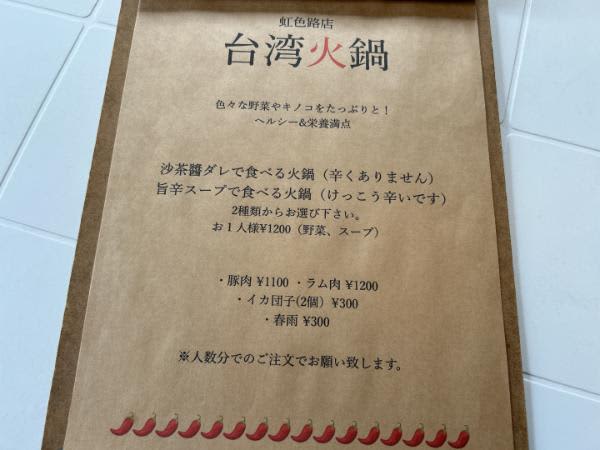 虹色路店
台湾火鍋
色々な野菜やキノコをたっぷりと！
ヘルシー&栄養満点
沙茶醬ダレで食べる火鍋（辛くありません）
旨辛スープで食べる火鍋（けっこう辛いです）
2種類からお選び下さい。
お１人様¥1200（野菜、スープ）
・豚肉 ¥1100 ・ラム肉 ¥1200
・イカ団子(2個）¥300
・春雨 ¥300
※人数分でのご注文でお願い致します。